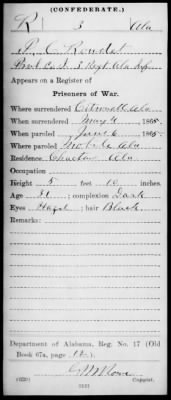 (CONFEDERATE.)
R 3 Ala
P. C. Roudet
Co. I, 3 Regt. Ala
Appears on a Register of
Prisoners of War.
Where surrendered Citronelle Ala
When surrendered May 4 1865
When paroled June 6 1865
Where paroled Mobile Ala
Residence Choctaw Ala
Occupation
Height 5 feet 10 inches.
Age 31 ; complexion Dark
Eyes Hazel ; hair Black
Remarks:
Department of Alabama, Reg. No. 17 (Old
Book 67a, page 12.)
Copyist.